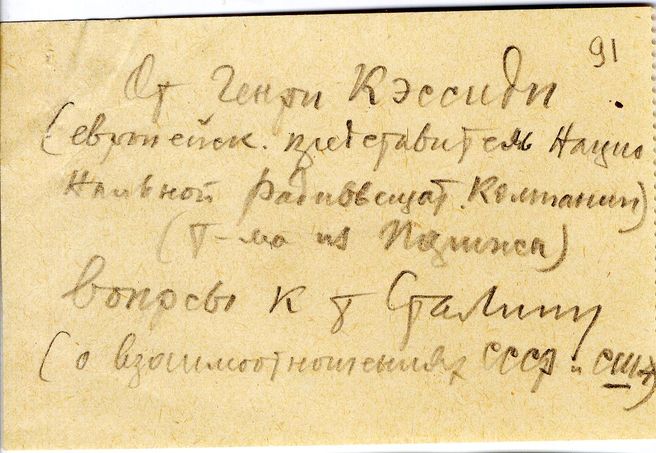 91
От Генри Кэссиди
(европейск. представитель Нацио
нальной радиовещат. Компании)
(т-ма из Парижа)
вопросы к т Сталину
(о взаимоотношениях СССР и США)